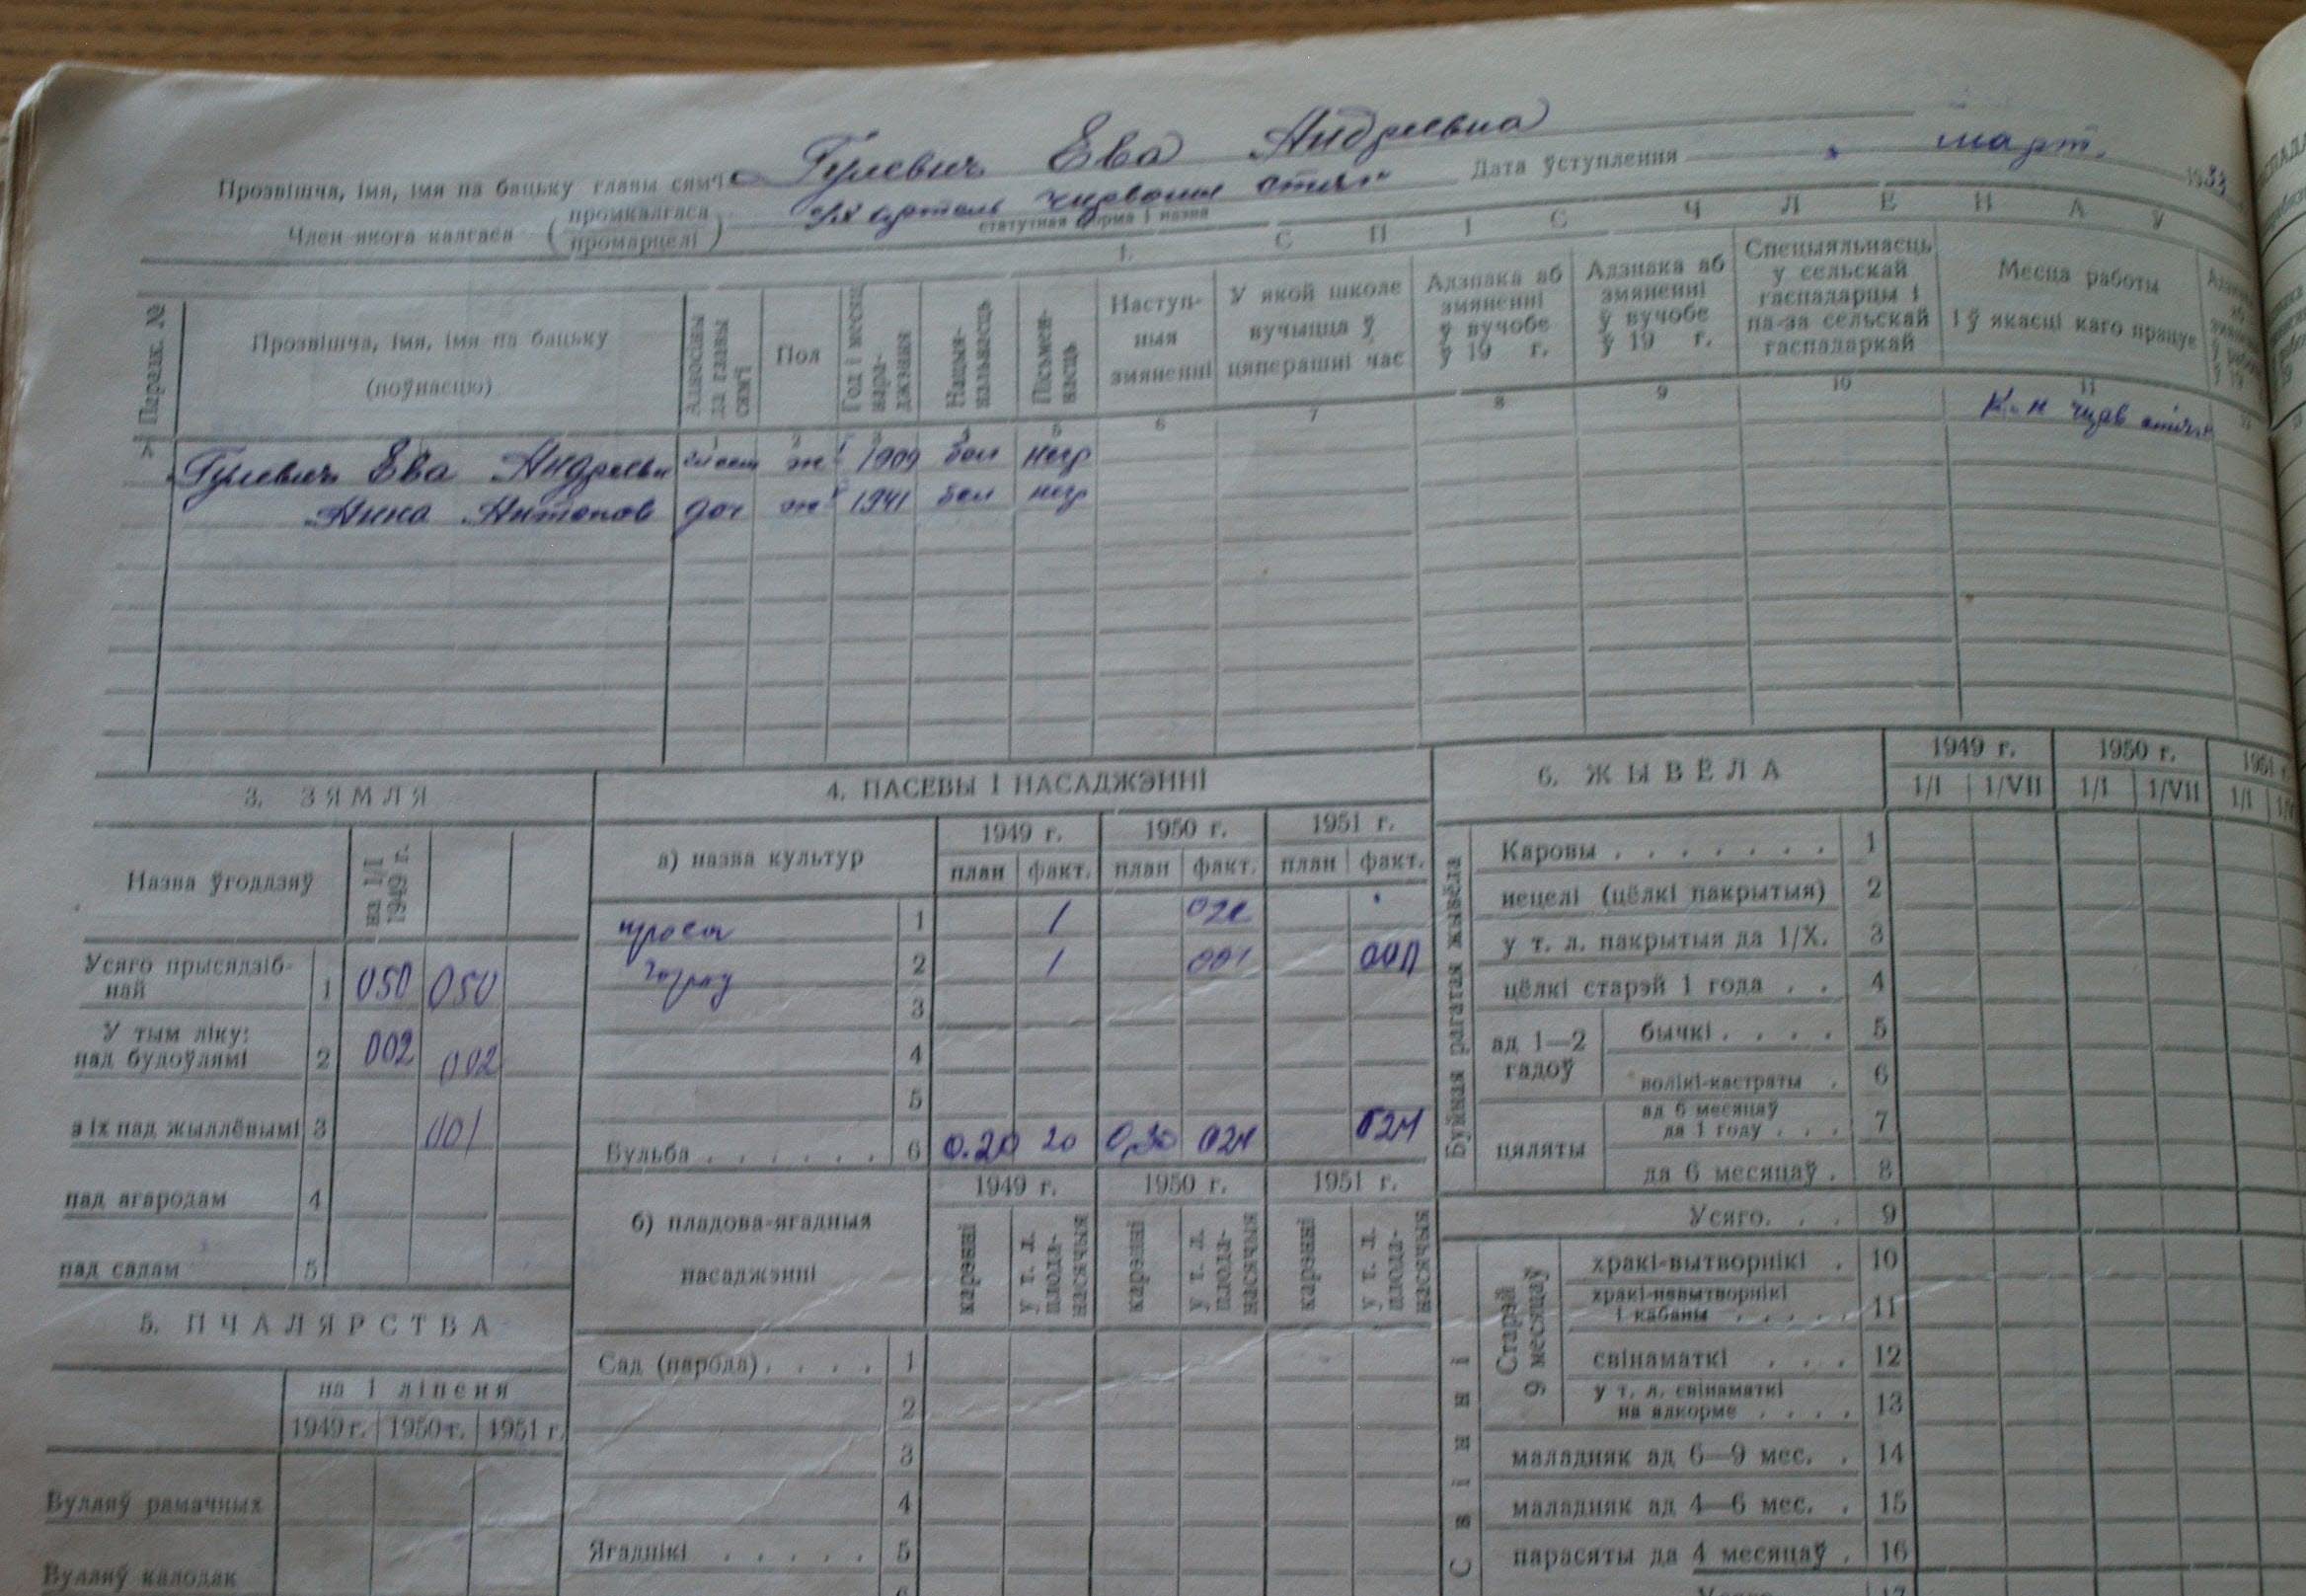 Прозвішча, імя, імя па бацьку главы сям'і Гулевич Ева Андреевна
Член якога калгаса (промкалгаса промарцелі) с/х артель
статутная форма і назва
Дата ўступлення март 1933
1. С П І С Ч Л Е Н А Ў
Парадк. №
Прозвішча, імя, імя па бацьку (поўнасцю)
Адносіны да главы сям'і
Пол
Год і месяц нараджэння
Нацыянальнасць
Пісьменнасць
Наступныя змяненні
У якой школе вучыцца ў цяперашні час
Адзнака аб змяненні ў вучобе ў 19 г.
Адзнака аб змяненні ў вучобе ў 19 г.
Спецыяльнасць у сельскай гаспадарцы і па-за сельскай гаспадаркай
Месца работы і ў якасці каго працуе
1 2 3 4 5 6 7 8 9 10 11
Гулевич Ева Андреевн ж 1909 бел негр
Анна Антонов доч ж 1941 бел негр
3. ЗЯМЛЯ
Назва ўгоддзяў
на 1/I 1949 г.
Усяго прысядзібнай 1 050 050
У тым ліку:
пад будоўлямі 2 002 002
з іх пад жыллёвымі 3 001
пад агародам 4
пад садам 5
4. ПАСЕВЫ І НАСАДЖЭННІ
а) назва культур
1949 г. 1950 г. 1951 г.
план факт. план факт. план факт.
просо 1 1
2 1 001
3
4
5
Бульба . . . . . . 6 0.20 20 0,30
б) пладова-ягадныя насаджэнні
1949 г. 1950 г. 1951 г.
карэнні у т. л. пладанасячыя карэнні у т. л. пладанасячыя карэнні у т. л. пладанасячыя
Сад (парода) . . . . 1
2
3
4
Ягаднікі . . . . . 5
5. ПЧАЛЯРСТВА
на 1 ліпеня
1949 г. 1950 г. 1951 г.
Вулляў рамачных
Вулляў калодак
6. ЖЫВЁЛА
1949 г. 1950 г. 1951 г.
1/I 1/VII 1/I 1/VII 1/I
Буйная рагатая жывёла
Каровы . . . . . . . 1
нецелі (цёлкі пакрытыя) 2
у т. л. пакрытыя да 1/X. 3
цёлкі старэй 1 года . . 4
ад 1—2 гадоў
бычкі . . . . 5
волікі-кастраты . 6
цяляты
ад 6 месяцаў да 1 году . . . 7
да 6 месяцаў . 8
Усяго. . . 9
Свінні
Старэй 9 месяцаў
хракі-вытворнікі . 10
хракі-невытворнікі і кабаны . . . . . 11
свінаматкі . . . 12
у т. л. свінаматкі на адкорме . . . . 13
маладняк ад 6—9 мес. . 14
маладняк ад 4—6 мес. . 15
парасяты да 4 месяцаў . 16
Усяго 17